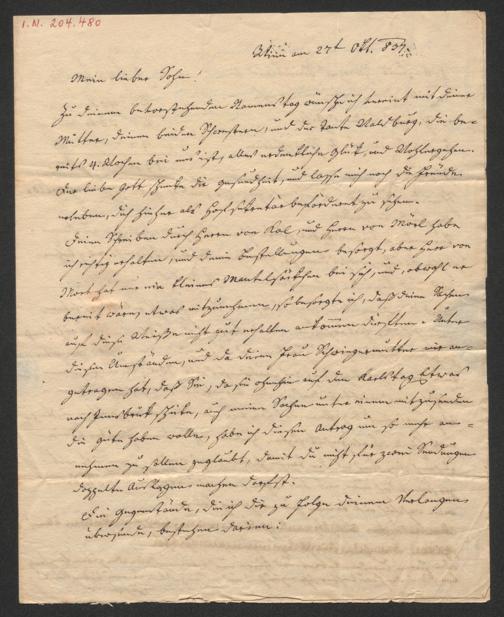 I.N. 204.480
Wien am 27t Okt. 837.
Mein lieber Sohn!
Zu deinem bevorstehenden Namenstag wünsche ich vereint mit deiner
Mutter, deinen beiden Schwestern, und der Tante Waldburg, die be-
reits 4 Wochen bei uns ist, alles erdenkliche Glük, und Wohlergehen.
Der liebe Gott schenke dir Gesundheit, und lasse mich noch die Freude
erleben, dich hieher als Hofsekretär befördert zu sehen.
Deine Schreiben durch Herrn von Kal, und Herrn von Mörl habe
ich richtig erhalten, und deine Bestellungen besorgt, aber Herr von
Mörl hat nur ein kleines Mantelsäckchen bei sich, und obwohl er
bereit wäre, etwas mitzunehmen, so besorgte ich, daß deine Sachen
auf diese Weise nicht gut erhalten ankommen dürften. Unter
diesen Umständen, und da deine Frau Schwiegermutter mir an-
getragen hat, daß Sie, da sie ohnehin auf den Karlstag Etwas
nach Innsbruk schike, auch meine Sachen unter einem mitzusenden
die Güte haben wolle, habe ich diesen Antrag um so mehr an-
nehmen zu sollen geglaubt, damit du nicht für zwei Sendungen
doppelte Auslagen machen darfst.
Die Gegenstände, die ich dir zu Folge deinem Verlangen
übersende, bestehen darin: